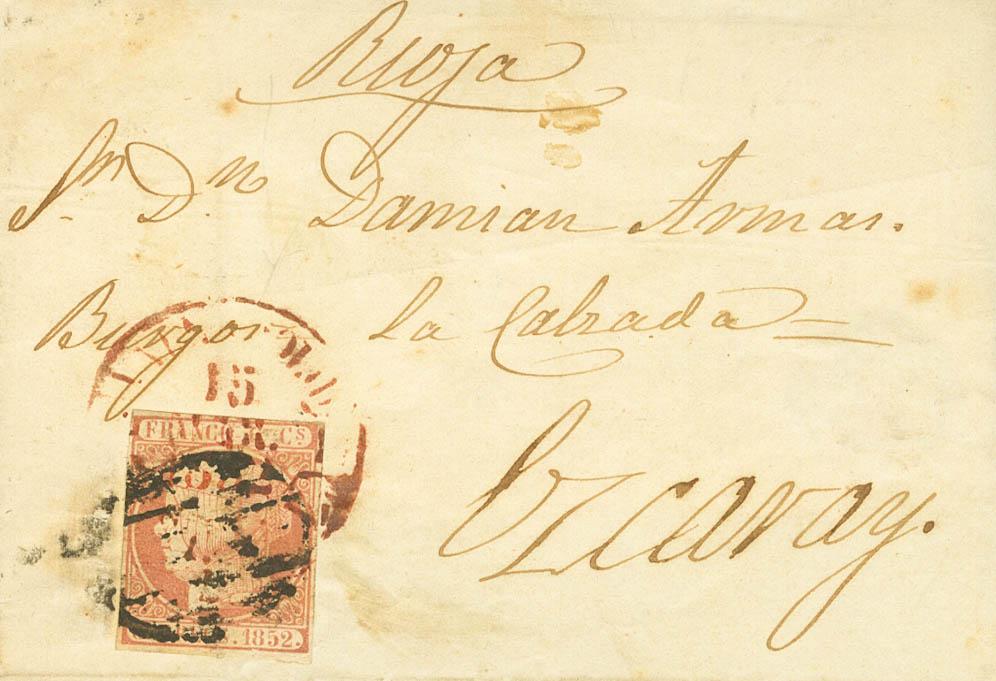 Rioja
Sr. Dn. Damian Armas.
Burgos La Calzada
Ezcaray.
15
FRANCO Cs
1852.